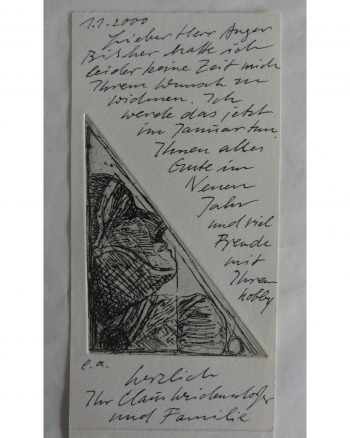 1.1.2000
Lieber Herr Anger
Bisher hatte ich
leider keine Zeit mich
Ihrem Wunsch zu
widmen. Ich
werde das jetzt
im Januar tun.
Ihnen alles
Gute im
Neuen
Jahr
und viel
Freude
mit
Ihrem
hobby
e.a.
herzlich
Ihr Claus
und Familie